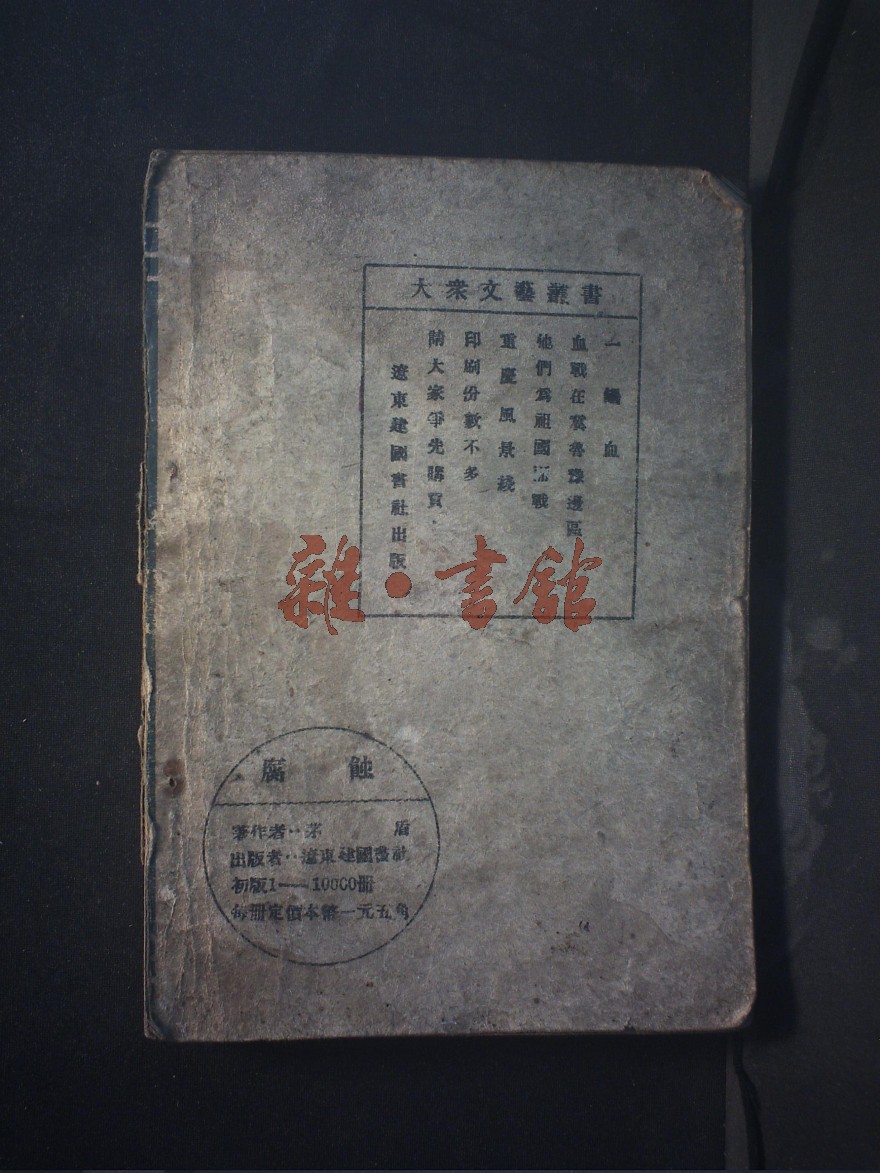 大衆文藝叢書
一滴血
血戰在冀魯豫邊區
他們爲祖國而戰
重慶風景綫
印刷份數不多
請大家爭先購買．
遼東建國書社出版
雜·書館
腐蝕
著作者··茅盾
出版者··遼東建國書社
初版1——10000冊
每冊定價本幣一元五角